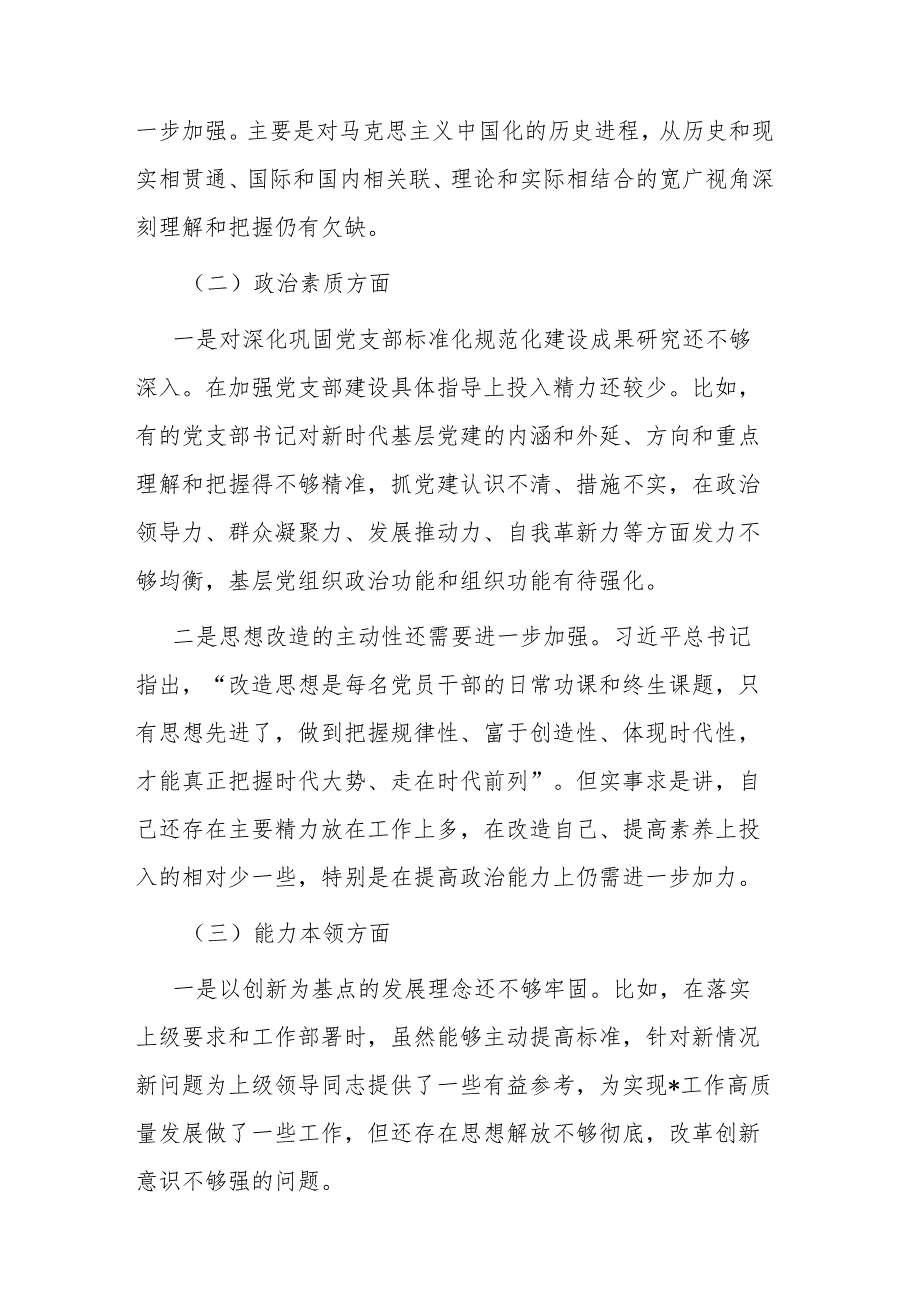 一步加强。主要是对马克思主义中国化的历史进程，从历史和现
实相贯通、国际和国内相关联、理论和实际相结合的宽广视角深
刻理解和把握仍有欠缺。
（二）政治素质方面
一是对深化巩固党支部标准化规范化建设成果研究还不够
深入。在加强党支部建设具体指导上投入精力还较少。比如，
有的党支部书记对新时代基层党建的内涵和外延、方向和重点
理解和把握得不够精准，抓党建认识不清、措施不实，在政治
领导力、群众凝聚力、发展推动力、自我革新力等方面发力不
够均衡，基层党组织政治功能和组织功能有待强化。
二是思想改造的主动性还需要进一步加强。习近平总书记
指出，“改造思想是每名党员干部的日常功课和终生课题，只
有思想先进了，做到把握规律性、富于创造性、体现时代性，
才能真正把握时代大势、走在时代前列”。但实事求是讲，自
己还存在主要精力放在工作上多，在改造自己、提高素养上投
入的相对少一些，特别是在提高政治能力上仍需进一步加力。
（三）能力本领方面
一是以创新为基点的发展理念还不够牢固。比如，在落实
上级要求和工作部署时，虽然能够主动提高标准，针对新情况
新问题为上级领导同志提供了一些有益参考，为实现*工作高质
量发展做了一些工作，但还存在思想解放不够彻底，改革创新
意识不够强的问题。